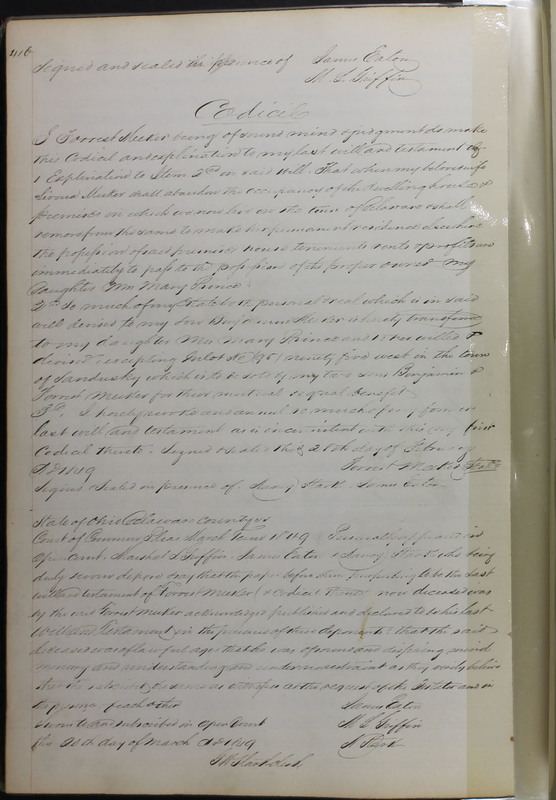 416
Signed and sealed in presence of James Eaton
M. L. Griffin
Codicil
I Forrest Meeker being of sound mind & judgment do make
this Codicil and explination to my last will and testament
1 Explination to Item 2nd in said will. That when my beloved wife
Meeker shall abandon the occupancy of the dwelling house &
premises in which we now live in the town of Delaware & shall
remove from the same to make her permanent residence elsewhere
the possession of said premises house tenements rents & profits are
immediately to pass to the possession of the proper owner my
daughter Mary Prince
2nd So much of my Estate both personal & real which is in said
will devised to my son Benjamin Meeker is hereby transfered
to my daughter Mrs Mary Prince and is her willed &
devised excepting Inlot No (95) ninety five west in the town
of Sandusky which is to be sold by my two sons Benjamin &
Forrest Meeker for their mutual & equal benefit
3rd. I hereby revoke and annul so much of my former
last will and testament as is inconsistent with this my first
Codicil thereto. Signed & sealed this 28th day of February
AD 1849 Forrest Meeker
Signed & sealed in presence of Stark James Eaton
State of Ohio Delaware County
Court of Common Pleas March Term 1849 Personally appeared in
open Court Griffin James Eaton & Stark who being
duly sworn depose & say that the paper before them purporting to be the last
will and testament of Forrest Meeker (& Codicil thereto) now deceased was
by the said Forrest Meeker acknowledged published and declared to be his last
Will and Testament in the presence of these deponents that the said
deceased was of lawful age that he was of sound and disposing mind
memory and understanding and under no restraint as they verily believe
that they subscribed the same as witnesses at the request of the Testator and in
the presence of each other James Eaton
Sworn to and subscribed in open Court M. L. Griffin
this 20th day of March AD 1849 Stark